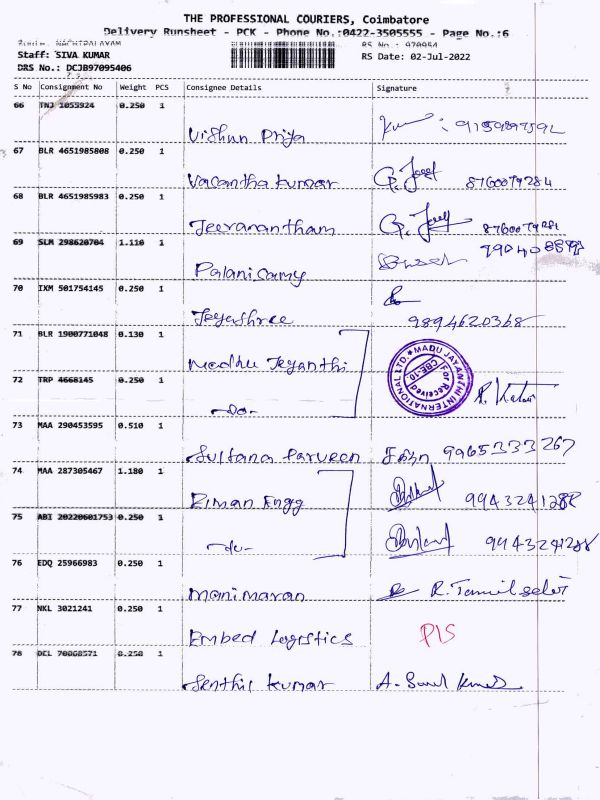 THE PROFESSIONAL COURIERS, Coimbatore
Delivery Runsheet - PCK - Phone No.:0422-3505555 - Page No.:6
Route: NACHIPALAYAM RS No.: 970954
Staff: SIVA KUMAR RS Date: 02-Jul-2022
DRS No.: DCJB97095406
S No Consignment No Weight PCS Consignee Details Signature
66 TNJ 1055924 0.250 1
Vishnu Priya
67 BLR 4651985808 0.250 1
Vasantha Kumar 8760079284
68 BLR 4651985983 0.250 1
Jeevanantham 8760079284
69 SLM 298620704 1.110 1
Palani Samy
70 IXM 501754145 0.250 1
Jeyashree 9894620368
71 BLR 1900771048 0.130 1
Madhu Jeyanthi
MADU JAYANTHI INTERNATIONAL LTD. * For Received CBE-10
72 TRP 4668145 0.250 1
-Do-
73 MAA 290453595 0.510 1
Sultana Parveen 9965333267
74 MAA 287305467 1.180 1
Eiman Engg 9943241288
75 ABI 20220601753 0.250 1
-Do- 9943241288
76 EDQ 25966983 0.250 1
Manimaran R. Tamil selvi
77 NKL 3021241 0.250 1
Embed Logistics P/S
78 DEL 70068571 0.250 1
Senthil Kumar